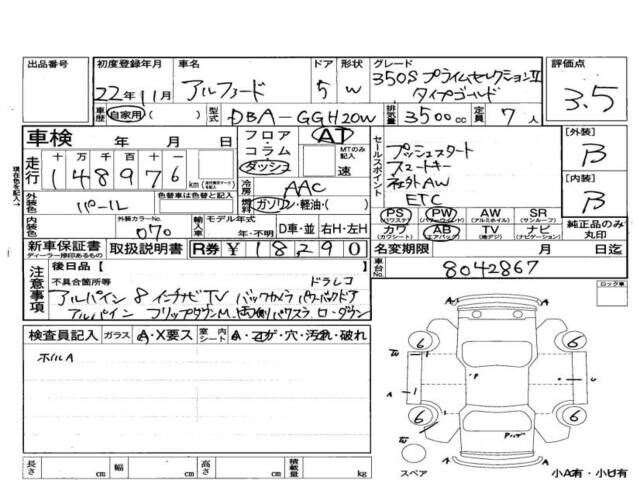 出品番号 初度登録年月 車名 ドア 形状 グレード 評価点
22年11月 アルファード 5 W 350S プライムセレクションⅡ
タイプゴールド 3.5
車歴 自家用 ( ) 型式 DBA-GGH20W 排気量 3500cc 定員 7人
車検 年 月 日 フロア・コラム・ダッシュ AT MTのみ記入 速
セールスポイント プッシュスタート
スマートキー
社外AW
ETC
[外装] B
[内装] B
走行 十 万 千 百 十 一
148976 km
冷房 AAC
外装色 パール 色替車は色替と記入 燃料 ガソリン・軽油・( )
内装色 外装カラーNo. 070 輸入車 モデル年式 年・不明 D車・並 右H・左H
PS (パワステ) PW (パワーウインド) AW (アルミホイル) SR (サンルーフ)
カワ (カワシート) AB (エアバック) TV (地デジ) ナビ (ナビゲーション) 純正品のみ丸印
新車保証書 ディーラー捺印あるもの 取扱説明書 R券 ¥18,290 名変期限 月 日迄
注意事項 後日品 [ ]
不具合箇所等 ドラレコ
アルパイン 8インチナビTV バックカメラ パワーバックドア
アルパイン フリップダウンM. 両側パワスラ ローダウン
車台No. 8042867
ロック車
検査員記入 ガラス A・X要ス 室内シート A・コゲ・穴・汚れ・破れ
ホイルA
W 6 6 W
A A
6 6
スペア
長さ cm 幅 cm 高さ cm 積載量 kg
小A有・小U有
現在色を記入→